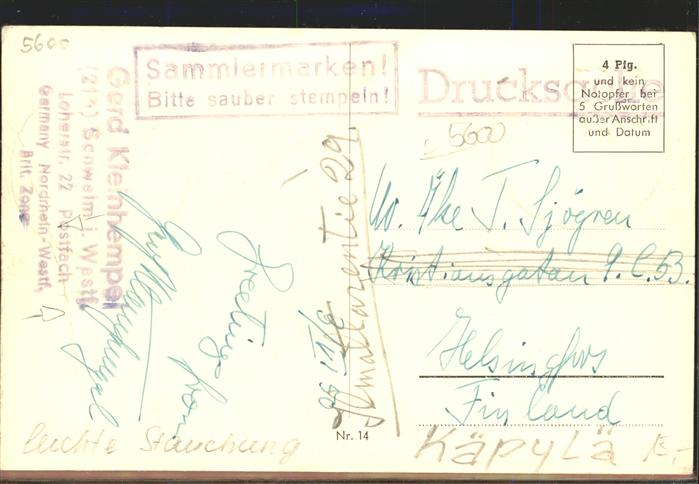 5600
Sammlermarken!
Bitte sauber stempeln!
Drucksache
4 Pfg.
und kein
Notopfer bei
5 Grußworten
außer Anschrift
und Datum
5600
Gerd Kleinhempel
Schwelm i. Westf.
Loherstr. 22 Postfach
Germany Nordrhein-Westf.
Brit. Zone
Greetings from
Gerd Kleinhempel
29
Åke T. Sjögren
Kristiansgatan 9. C. 53.
Helsingfors
Finland
Käpylä
leichte Stauchung
Nr. 14
15,-